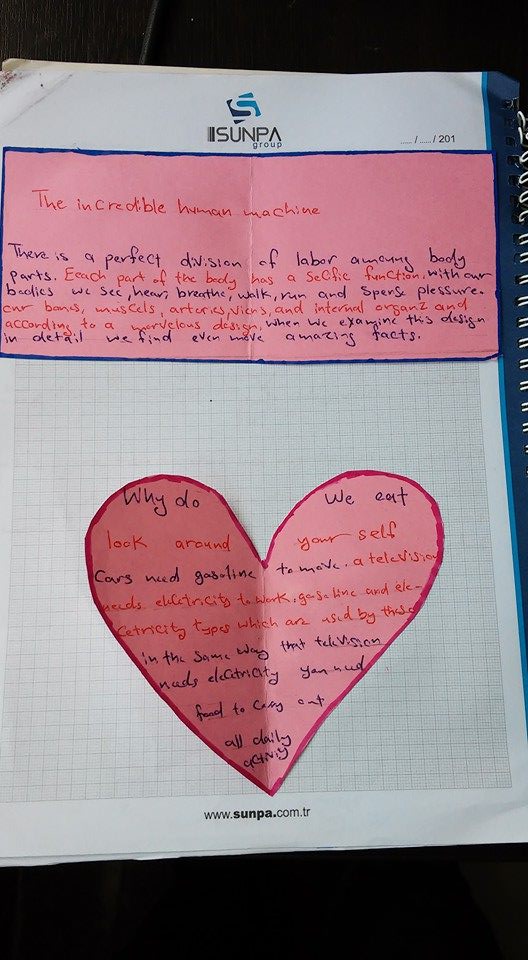 SUNPA
group
..... / ..... / 201
The incredible human machine
There is a perfect division of labor amoung body
parts. Eeach part of the body has a Secfic function. with our
bodies we see, hear, breathe, walk, run and sperse plessure.
our bons, muscels, arteries, viens, and internal organz and
according to a marvelous design, when we examine this design
in detail we find even move amazing facts.
Why do We eat
look around your self
Cars need gasoline to move. a television
needs electricity to work. gasoline and ele-
cetricity types which are used by these
in the same way that television
needs electricity you need
food to carry out
all daily
activiy
www.sunpa.com.tr